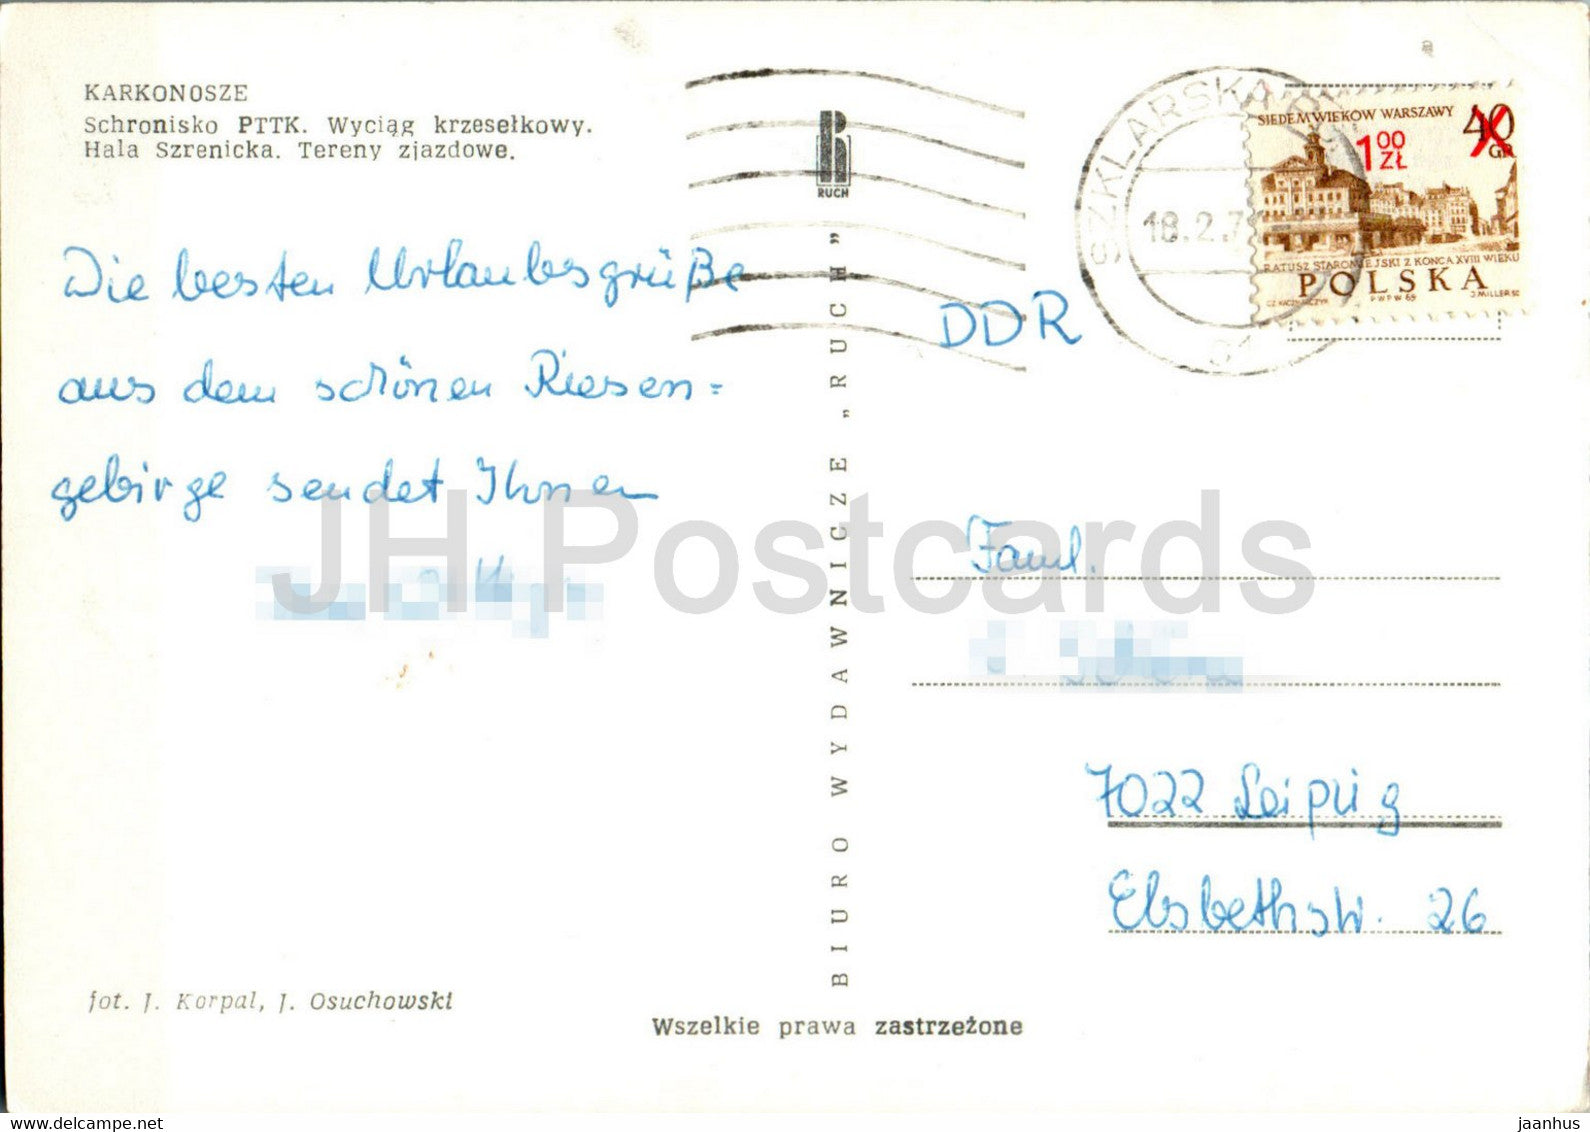 KARKONOSZE
Schronisko PTTK. Wyciąg krzesełkowy.
Hala Szrenicka. Tereny zjazdowe.
Die besten Urlaubsgrüße
aus dem schönen Riesen=
gebirge sendet Ihnen
fot. J. Korpal, J. Osuchowski
RUCH
BIURO WYDAWNICZE „RUCH”
Wszelkie prawa zastrzeżone
SZKLARSKA
18.2.7
SIEDEM WIEKÓW WARSZAWY
40
GR
1 00
ZŁ
RATUSZ STAROMIEJSKI Z KOŃCA XVIII WIEKU
POLSKA
PWPW 69
J. MILLER SC
DDR
Faml.
7022 Leipzig
Elsbethstr. 26
JH Postcards
www.delcampe.net
jaanhus